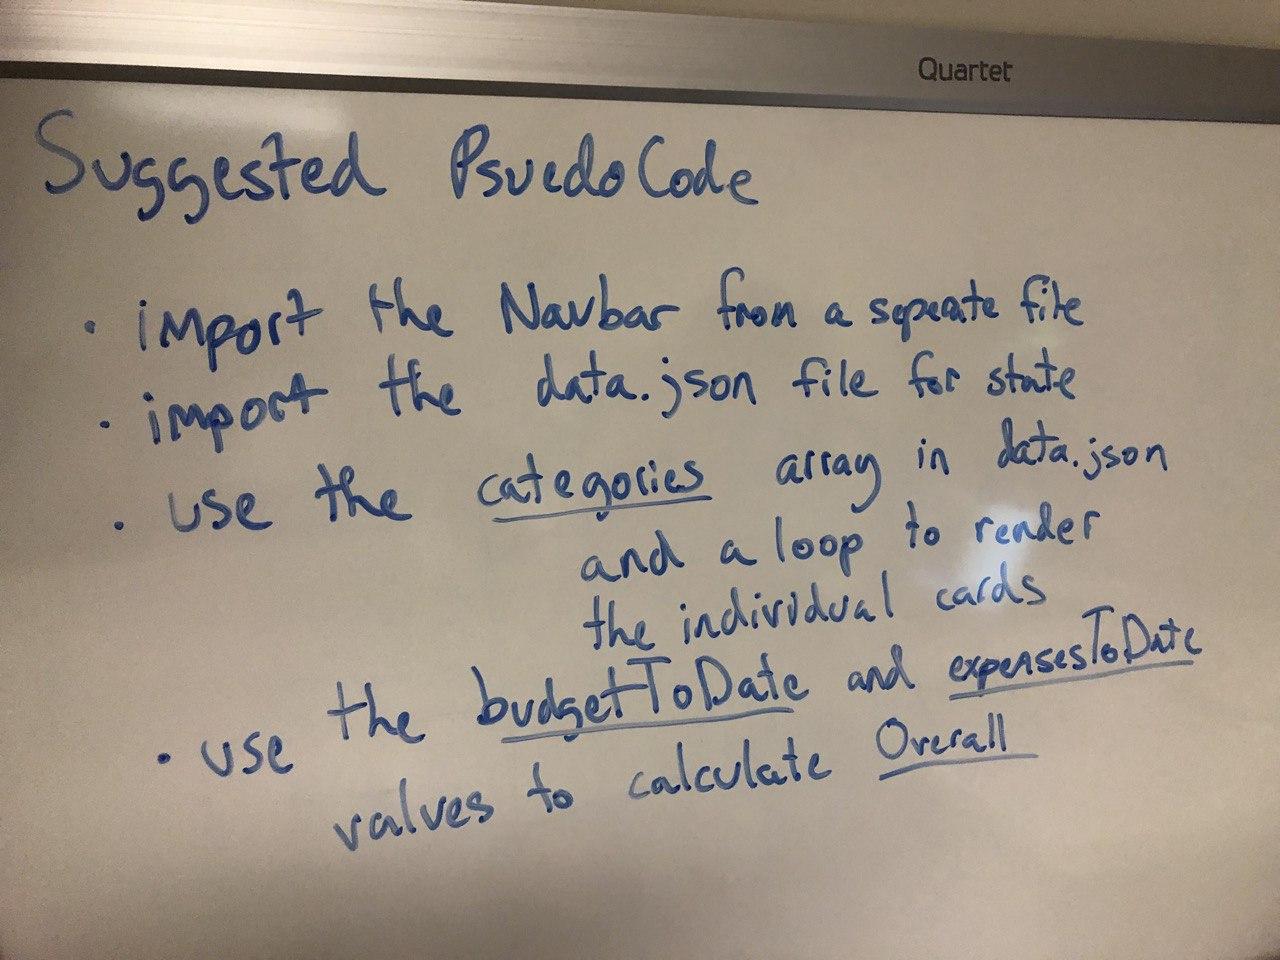 Quartet
Suggested PsuedoCode
• import the Navbar from a seperate file
• import the data.json file for state
• use the categories array in data.json
and a loop to render
the individual cards
• use the budgetToDate and expensesToDate
values to calculate Overall